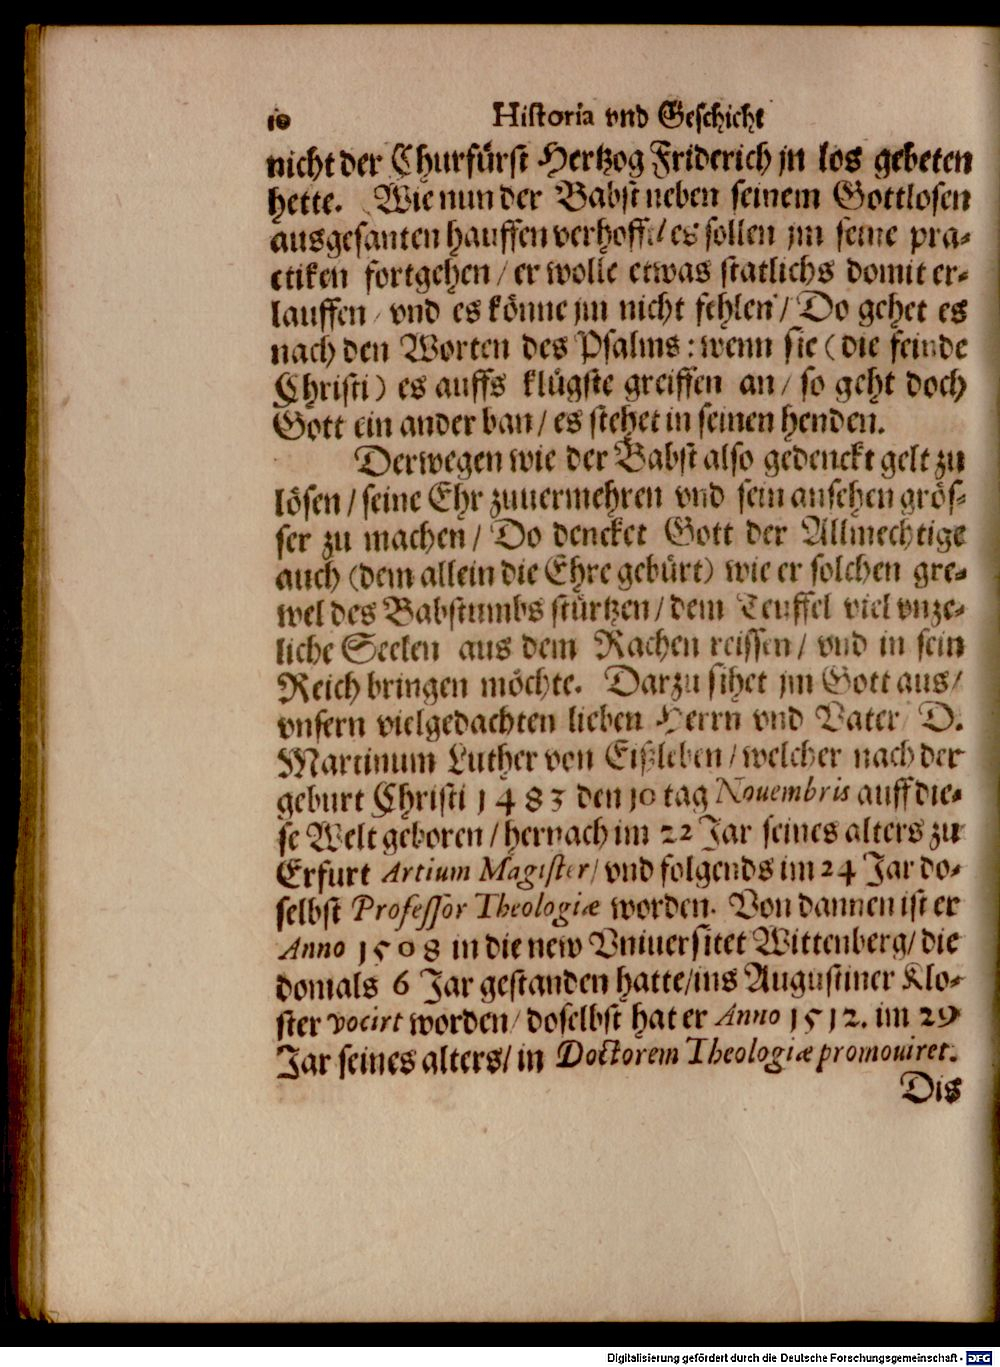 10 Historia vnd Geschicht
nicht der Churfürst Hertzog Friderich jn los gebeten
hette. Wie nun der Babst neben seinem Gottlosen
ausgesanten hauffen verhofft/ es sollen jm seine pra-
ctiken fortgehen/ er wolle etwas statlichs domit er-
lauffen/ vnd es könne jm nicht fehlen/ Do gehet es
nach den Worten des Psalms: wenn sie (die feinde
Christi) es auffs klügste greiffen an/ so geht doch
Gott ein ander ban/ es stehet in seinen henden.
Derwegen wie der Babst also gedenckt gelt zu
lösen/ seine Ehr zuuermehren vnd sein ansehen grös-
ser zu machen/ Do dencket Gott der Allmechtige
auch (dem allein die Ehre gebürt) wie er solchen gre-
wel des Babstumbs stürtzen/ dem Teuffel viel vnze-
liche Seelen aus dem Rachen reissen/ vnd in sein
Reich bringen möchte. Darzu sihet jm Gott aus/
vnsern vielgedachten lieben Herrn vnd Vater D.
Martinum Luther von Eißleben/ welcher nach der
geburt Christi 1483 den 10 tag Nouembris auff die-
se Welt geboren/ hernach im 22 Jar seines alters zu
Erfurt Artium Magister/ vnd folgends im 24 Jar do-
selbst Professor Theologiæ worden. Von dannen ist er
Anno 1508 in die new Vniuersitet Wittenberg/ die
domals 6 Jar gestanden hatte/ ins Augustiner Klo-
ster vocirt worden/ doselbst hat er Anno 1512. im 29
Jar seines alters/ in Doctorem Theologiæ promouiret.
Dis
Digitalisierung gefördert durch die Deutsche Forschungsgemeinschaft - DFG